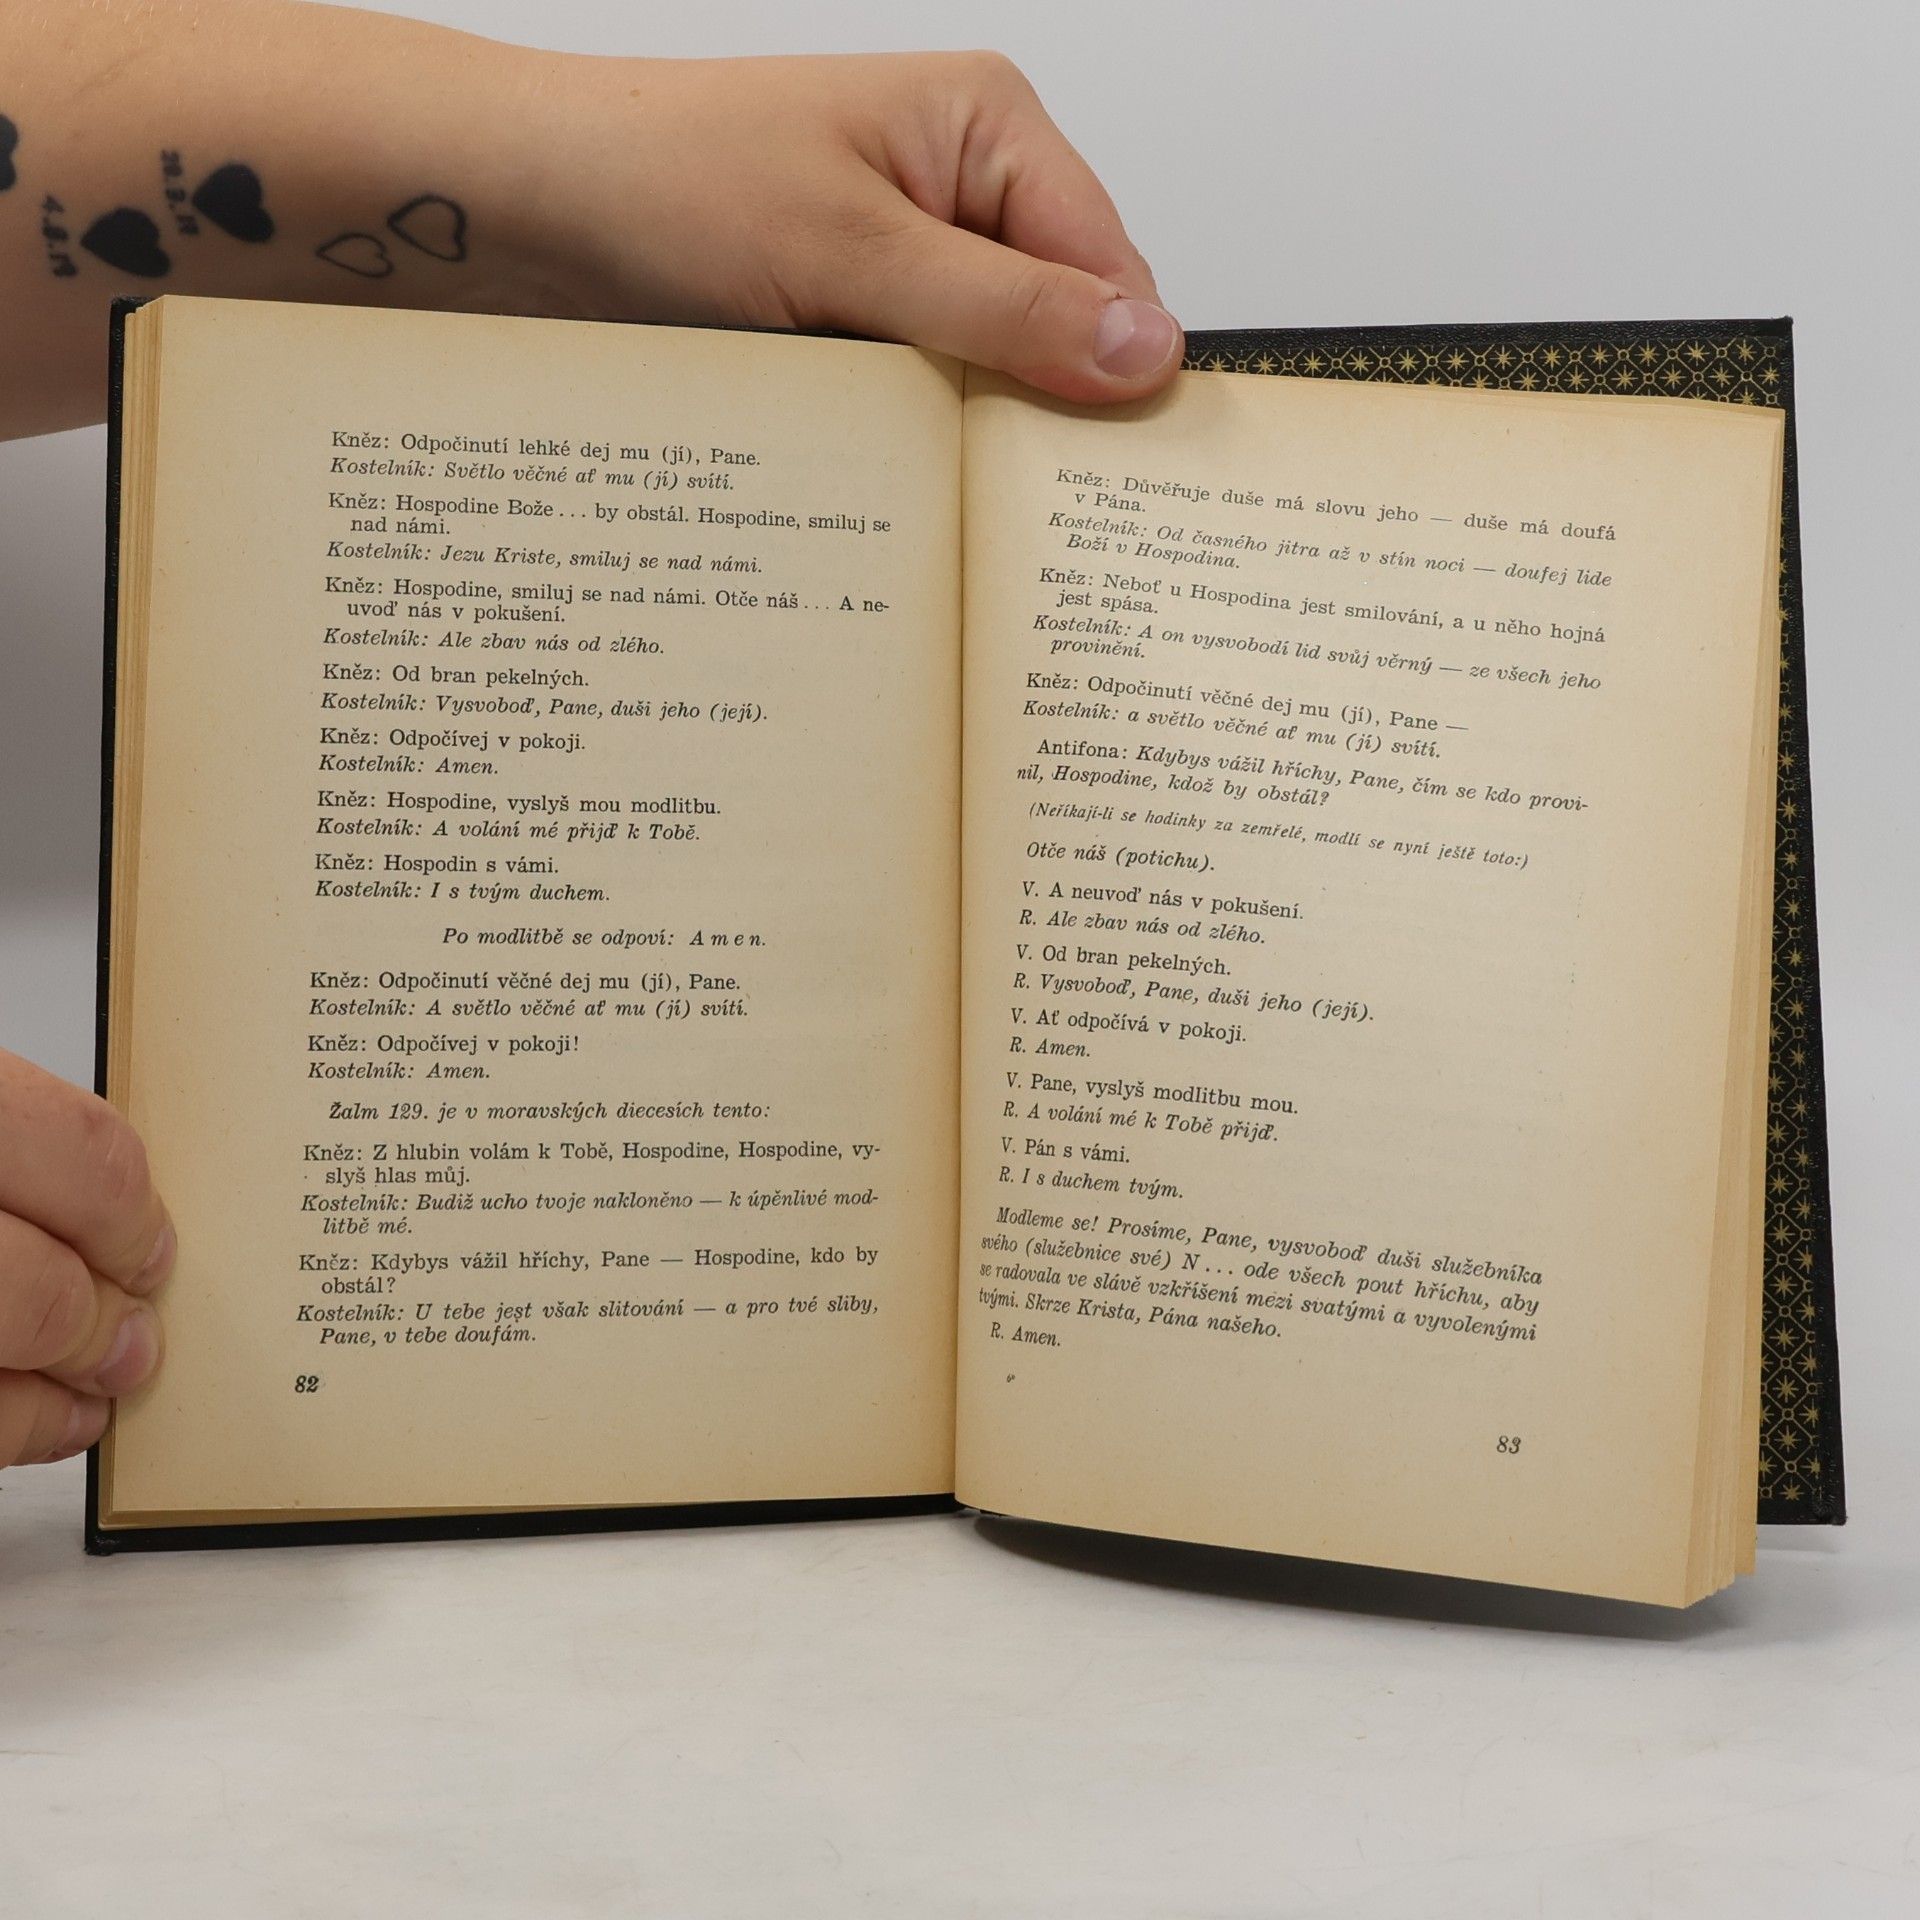 4.8.19
Kněz: Odpočinutí lehké dej mu (jí), Pane.
Kostelník: Světlo věčné ať mu (jí) svítí.
Kněz: Hospodine Bože... by obstál. Hospodine, smiluj se
nad námi.
Kostelník: Jezu Kriste, smiluj se nad námi.
Kněz: Hospodine, smiluj se nad námi. Otče náš... A ne-
uvoď nás v pokušení.
Kostelník: Ale zbav nás od zlého.
Kněz: Od bran pekelných.
Kostelník: Vysvoboď, Pane, duši jeho (její).
Kněz: Odpočívej v pokoji.
Kostelník: Amen.
Kněz: Hospodine, vyslyš mou modlitbu.
Kostelník: A volání mé přijď k Tobě.
Kněz: Hospodin s vámi.
Kostelník: I s tvým duchem.
Po modlitbě se odpoví: Amen.
Kněz: Odpočinutí věčné dej mu (jí), Pane.
Kostelník: A světlo věčné ať mu (jí) svítí.
Kněz: Odpočívej v pokoji!
Kostelník: Amen.
Žalm 129. je v moravských diecesích tento:
Kněz: Z hlubin volám k Tobě, Hospodine, Hospodine, vy-
slyš hlas můj.
Kostelník: Budiž ucho tvoje nakloněno — k úpěnlivé mod-
litbě mé.
Kněz: Kdybys vážil hříchy, Pane — Hospodine, kdo by
obstál?
Kostelník: U tebe jest však slitování — a pro tvé sliby,
Pane, v tebe doufám.
82
Kněz: Důvěřuje duše má slovu jeho — duše má doufá
v Pána.
Kostelník: Od časného jitra až v stín noci — doufej lide
Boží v Hospodina.
Kněz: Neboť u Hospodina jest smilování, a u něho hojná
jest spása.
Kostelník: A on vysvobodí lid svůj věrný — ze všech jeho
provinění.
Kněz: Odpočinutí věčné dej mu (jí), Pane —
Kostelník: a světlo věčné ať mu (jí) svítí.
Antifona: Kdybys vážil hříchy, Pane, čím se kdo provi-
nil, Hospodine, kdož by obstál?
(Neříkají-li se hodinky za zemřelé, modlí se nyní ještě toto:)
Otče náš (potichu).
V. A neuvoď nás v pokušení.
R. Ale zbav nás od zlého.
V. Od bran pekelných.
R. Vysvoboď, Pane, duši jeho (její).
V. Ať odpočívá v pokoji.
R. Amen.
V. Pane, vyslyš modlitbu mou.
R. A volání mé k Tobě přijď.
V. Pán s vámi.
R. I s duchem tvým.
Modleme se! Prosíme, Pane, vysvoboď duši služebníka
svého (služebnice své) N... ode všech pout hříchu, aby
se radovala ve slávě vzkříšení mezi svatými a vyvolenými
tvými. Skrze Krista, Pána našeho.
R. Amen.
83